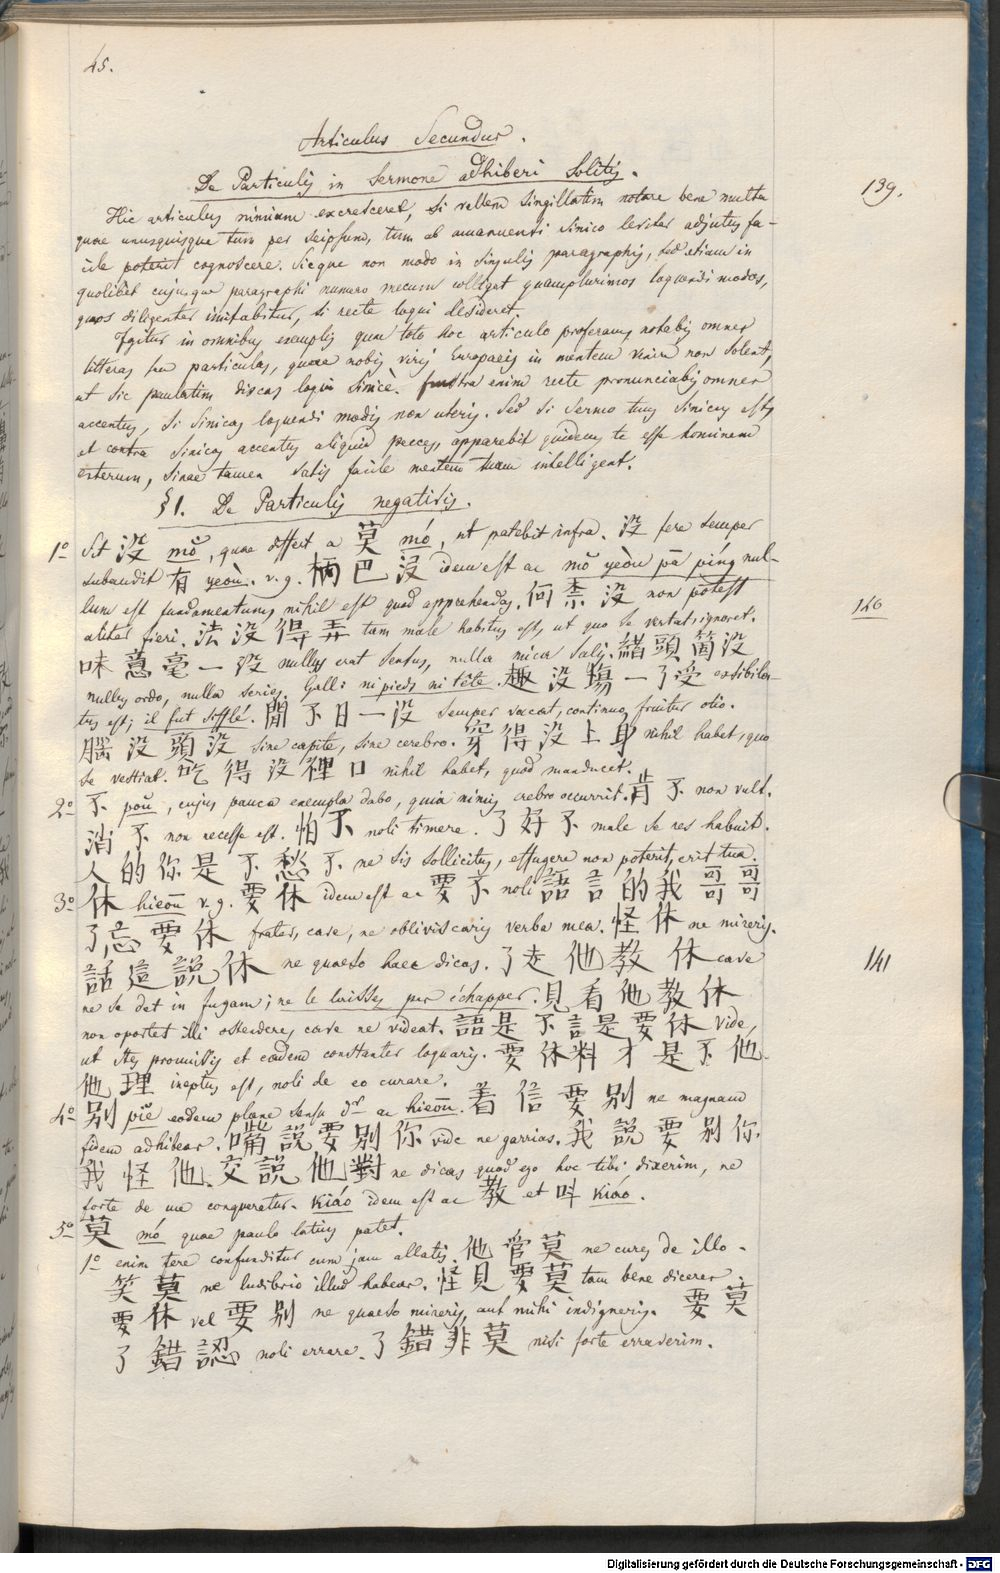 45.
Articulus Secundus.
De Particulis in Sermone adhiberi Solitis.
139.
Hic articulus nimium excresceret, si vellem singillatim notare bene multa
quae unusquisque tum per seipsum, tum ab amanuensi Sinico leviter adjutus fa-
cile poterit cognoscere. Sicque non modo in singulis paragraphis, sed etiam in
quolibet cujusque paragraphi numero mecum colliget quamplurimos loquendi modos,
quos diligenter imitabitur, si recte loqui desideret.
Igitur in omnibus exemplis quae toto hoc articulo proferam, notabis omnes
litteras seu particulas, quae nobis viris Europaeis in mentem venire non solent,
ut sic paulatim discas loqui Sinicè. frustra enim recte pronunciabis omnes
accentus, si Sinicis loquendi modis non uteris. Sed si sermo tuus Sinicus est,
et contra Sinicos accentus aliquid pecces, apparebit quidem te esse hominem
exterum, Sinae tamen satis facile mentem tuam intelligent.
§ 1. De Particulis negativis.
1º Sit 没 mŏ, quae differt a 莫 mó, ut patebit infra. 没 fere semper
subaudit 有 yeoù. v.g. 柄巴沒 idem est ac mŏ yeòu pà píng nul-
lum est fundamentum, nihil est quod apprehendas. 何柰没 non potest
140
aliter fieri. 法没得弄 tam male habitus est, ut quo se vertat ignoret.
味意毫一没 nullus erat sensus, nulla mica salis. 緒頭箇没
nullus ordo, nulla series. Galli ni pieds ni tête. 趣没塲一了受 exsibila-
tus est; il fut sifflé. 閒不日一没 semper vacat, continuo fruitur otio.
腦没頭没 sine capite, sine cerebro. 穿得没上身 nihil habet, quo
se vestiat. 吃得没裡口 nihil habet, quod manducet.
2º 不 poŭ, cujus pauca exempla dabo, quia nimis crebro occurrit. 肯不 non vult.
消不 non necesse est. 怕不 noli timere. 了好不 male se res habuit.
人的你是不愁不 ne sis sollicitus, effugere non poterit, erit tua.
3º 休 hieoū v.g. 要休 idem est ac 要不 noli 語言的我哥哥
了忘要休 frater, cave, ne obliviscaris verba mea. 怪休 ne mireris.
話這説休 ne quaeso haec dicas. 了走他教休 cave
141
ne se det in fugam; ne le laissez pas échapper. 見看他教休
non oportet illi ostendere, cave ne videat. 語是不言是要休 vide,
ut stes promissis et eodem constanter loquaris. 要休料才是不他
他理 ineptus est, noli de eo curare.
4º 别 piĕ eodem plane sensu dr ac hieoū. 着信要别 ne magnam
fidem adhibeas. 嘴説要别你 vide ne garrias. 我説要别你
我怪他交説他對 ne dicas quod ego hoc tibi dixerim, ne
forte de me conqueratur. Kiáo idem est ac 教 et 叫 Kiáo.
5º 莫 mó quae paulo latius patet.
1º enim fere confunditur cum jam allatis. 他管莫 ne cures de illo.
笑莫 ne ludibrio illud habeas. 怪見要莫 tam bene diceres
要休 vel 要别 ne quaeso mireris, aut mihi indigneris. 要莫
了錯認 noli errare. 了錯非莫 nisi forte erraverim.
Digitalisierung gefördert durch die Deutsche Forschungsgemeinschaft - DFG